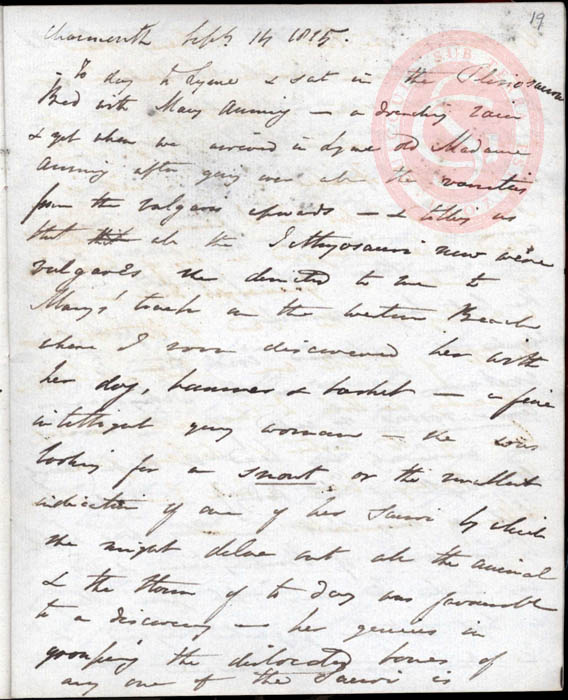 19
Charmouth Sept 14 1815.
To day to Lyme & sat in the Plesiosaurus
Bed with Mary Anning — a drenching rain
& yet when we arrived in Lyme old Madame
Anning after going over all the varieties
from the vulgaris upwards — & telling us
that all the Icthyosauri now were
vulgares she directed to me to
Mary's track on the western Beach
where I soon discovered her with
her dog, hammer & basket — a fine
intelligent young woman — she was
looking for a snout or the smallest
indication of one of her Sauri by which
she might delve out all the animal
& the storm of to day was favourable
to a discovery — her genius in
grouping the dislocated bones of
any one of the Sauri is